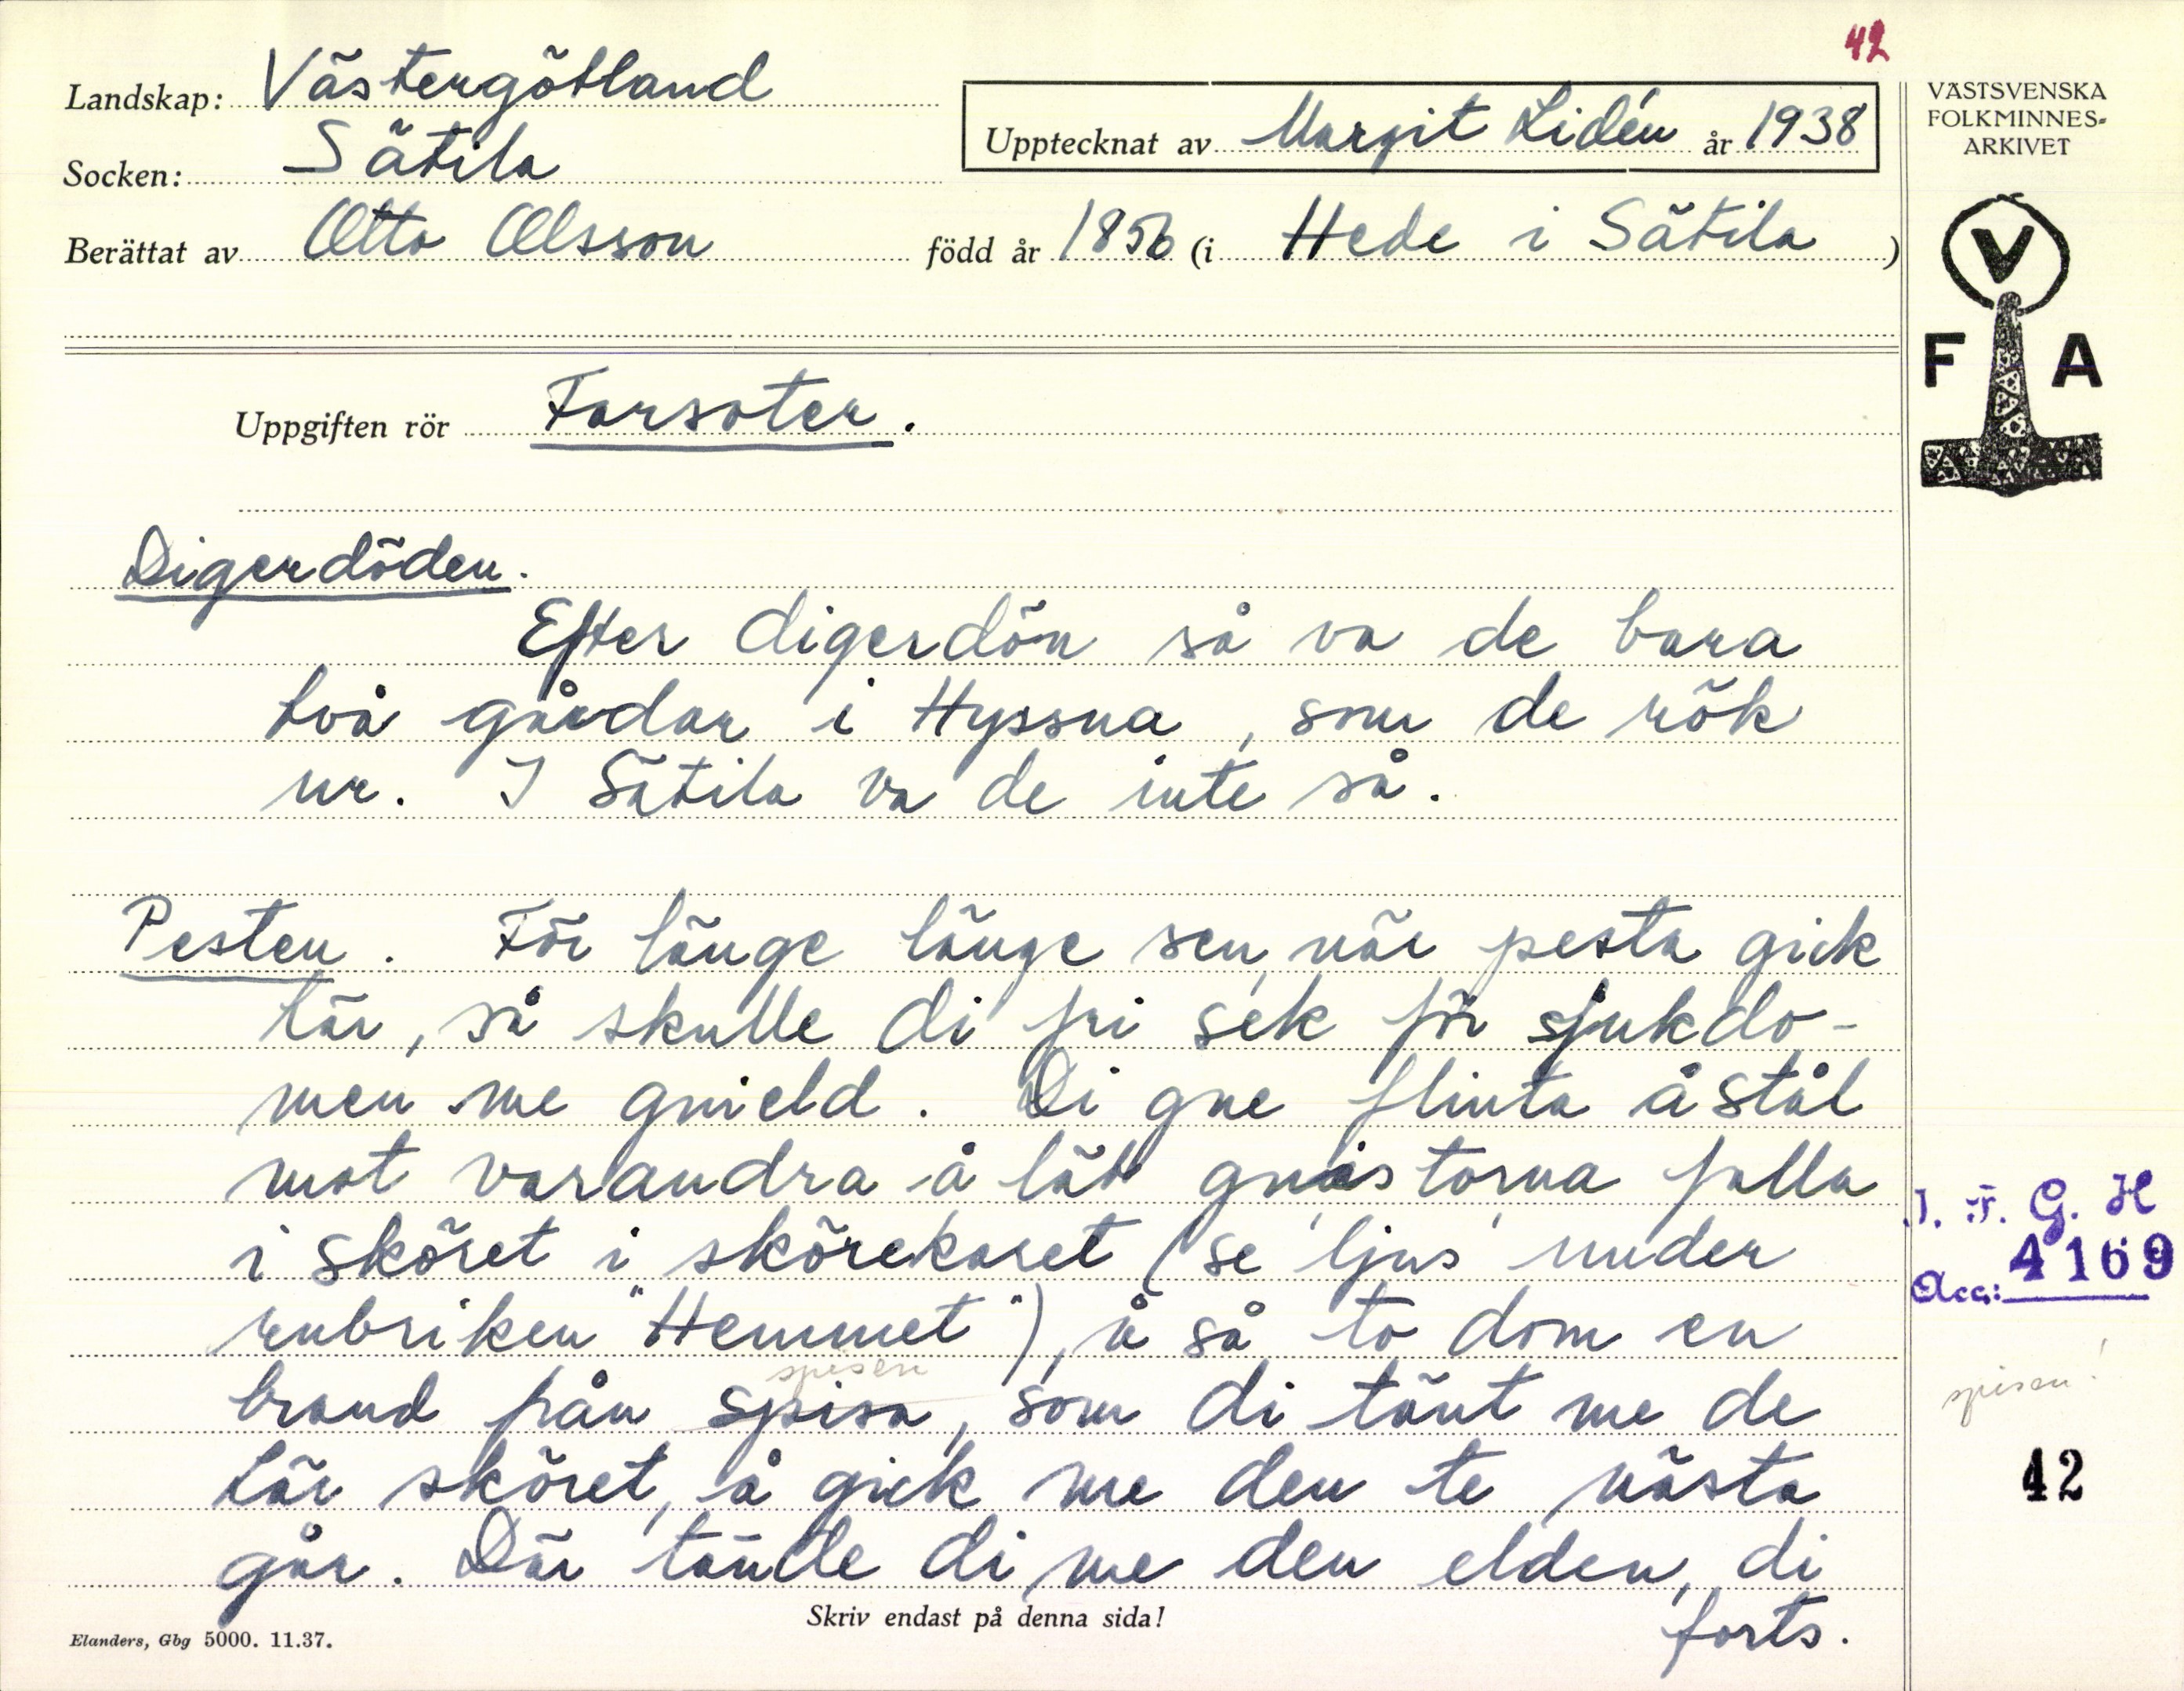 42
Landskap: Västergötland
Socken: Sätila
Upptecknat av Margit Lidén år 1938
Berättat av Otto Olsson född år 1856 (i Hede i Sätila )
VÄSTSVENSKA
FOLKMINNES-
ARKIVET
V
F A
Uppgiften rör Farsoter.
Digerdöden.
Efter digerdön så va de bara
två gårdar i Hyssna, som de rök
ur. I Sätila va de inte så.
Pesten. För länge länge sen, när pesta gick
här, så skulle di fri sek för sjukdo-
men me gnield. Di gne flinta å stål
mot varandra å lät gnistorna falla
i sköret i skörekaret (se 'ljus' under
rubriken "Hemmet"), å så to dom en
spisen
brand från spisa, som di tänt me de
här sköret, å gick me den te nästa
går. Där tände di me den elden, di
forts.
Skriv endast på denna sida!
Elanders, Gbg 5000. 11.37.
I. F. G. H
Acc: 4169
spisen!
42